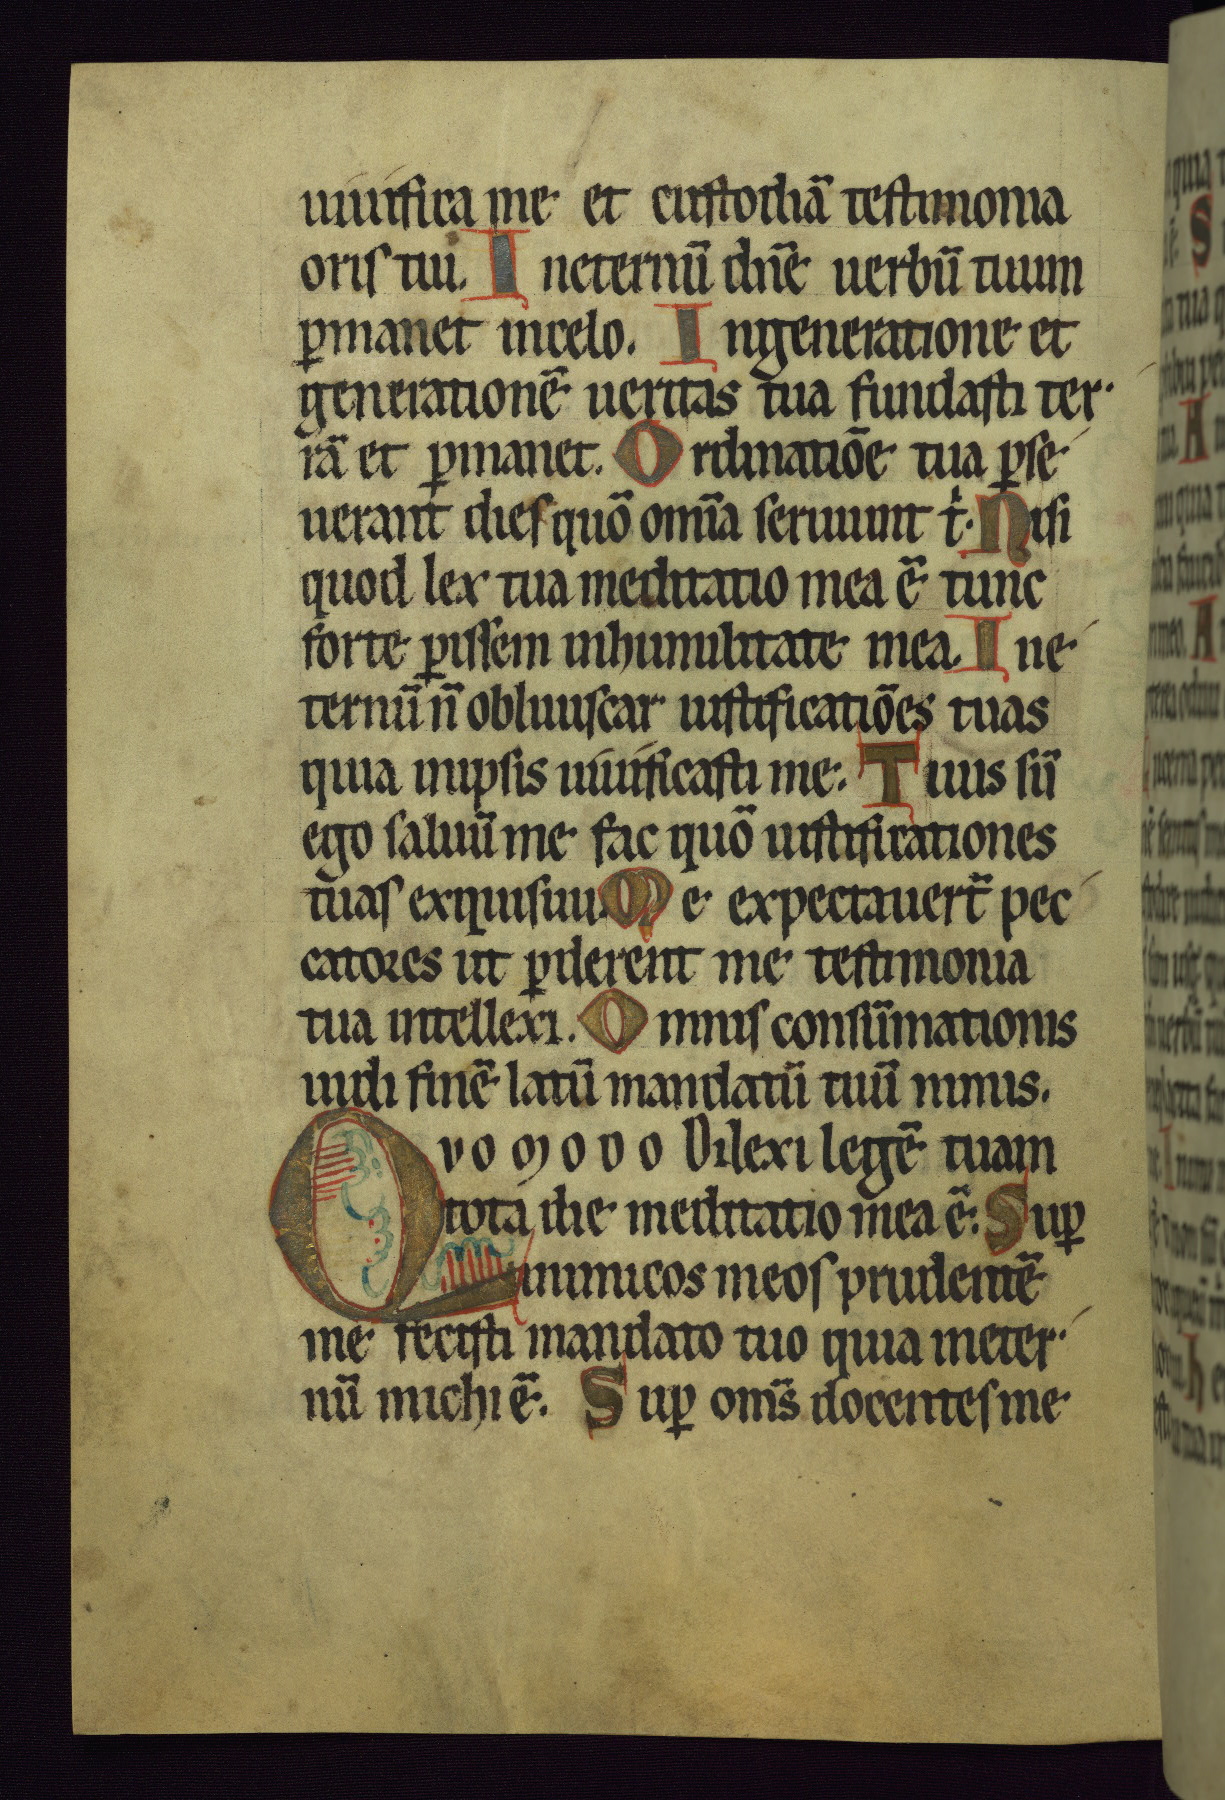 uiuifica me et custodiā testimonia
oris tui. I neternū dn̄e uerbū tuum
ꝑmanet incelo. I ngeneratione et
generationē ueritas tua fundasti ter
rā et ꝑmanet. O rdinatiōe tua ꝑse
uerant dies quō omīa seruiunt t̄. Nisi
quod lex tua meditatio mea ē tunc
forte ꝑissem inhumilitate mea. I ne
ternū n̄ obliuiscar iustificatiōes tuas
quia inipsis uiuificasti me. Tuus sū
ego saluū me fac quō iustificationes
tuas exquisiui. M e expectauert̄ pec
catores ut ꝑderent me testimonia
tua intellexi. O mnis consūmationis
uidi finē latū mandatū tuū nimis.
QVOMODO Dilexi legē tuam
tota die meditatio mea ē. Suꝑ
inimicos meos prudentē
me fecisti mandato tuo quia ineter
nū michi ē. S uꝑ oms̄ docentes me